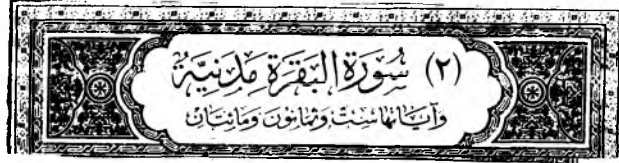 (٢) سُورَةُ البَقَرَةِ مَدَنِيَّةٌ
وَآيَاتُهَا سِتٌّ وَثَمَانُونَ وَمَائِتَانِ